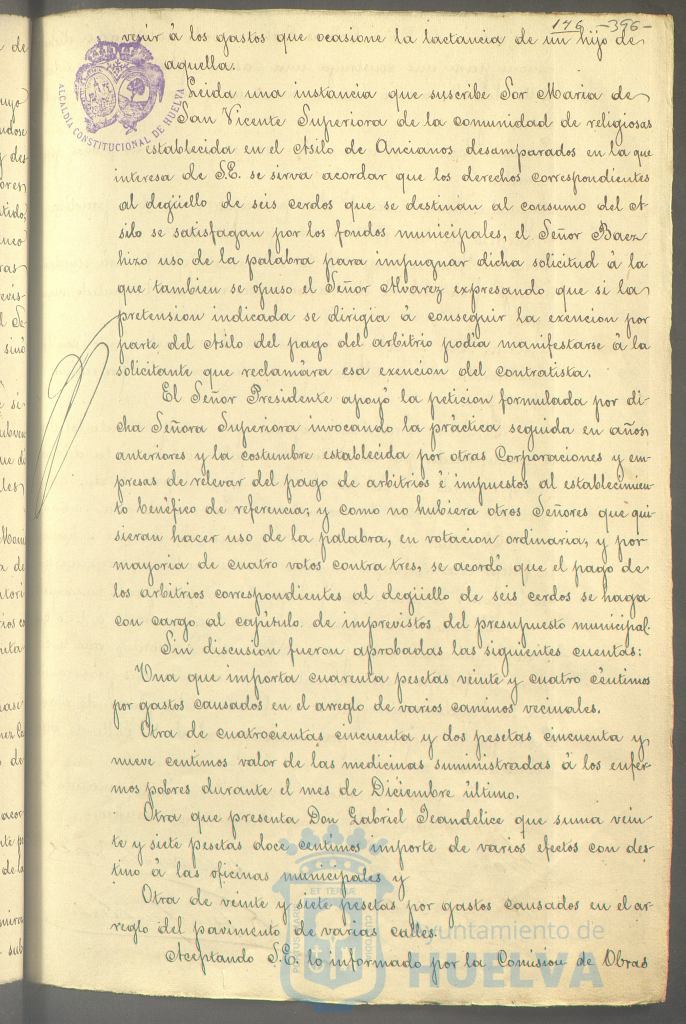 176 -396-
venir á los gastos que ocasione la lactancia de un hijo de
aquella.
Leida una instancia que suscribe Sor Maria de
San Vicente Superiora de la comunidad de religiosas
establecida en el Asilo de Ancianos desamparados en la que
interesa de S.E. se sirva acordar que los derechos correspondientes
al degüello de seis cerdos que se destinan al consumo del A-
silo se satisfagan por los fondos municipales, el Señor Baez
hizo uso de la palabra para impugnar dicha solicitud á la
que tambien se opuso el Señor Alvarez expresando que si la
pretension indicada se dirigia á conseguir la exencion por
parte del Asilo del pago del arbitrio podia manifestarse á la
solicitante que reclamára esa exencion del contratista.
El Señor Presidente apoyó la peticion formulada por di-
cha Señora Superiora invocando la práctica seguida en años
anteriores y la costumbre establecida por otras Corporaciones y em-
presas de relevar del pago de arbitrios é impuestos al establecimien-
to benéfico de referencia; y como no hubiera otros Señores que qui-
sieran hacer uso de la palabra, en votacion ordinaria, y por
mayoria de cuatro votos contra tres, se acordó que el pago de
los arbitrios correspondientes al degüello de seis cerdos se haga
con cargo al capítulo de imprevistos del presupuesto municipal.
Sin discusion fueron aprobadas las siguientes cuentas:
Una que importa cuarenta pesetas veinte y cuatro céntimos
por gastos causados en el arreglo de varios caminos vecinales.
Otra de cuatrocientas cincuenta y dos pesetas cincuenta y
nueve centimos valor de las medicinas suministradas á los enfer-
mos pobres durante el mes de Diciembre último.
Otra que presenta Don Gabriel Jeandelice que suma vein-
te y siete pesetas doce centimos importe de varios efectos con des-
tino á las oficinas municipales y
Otra de veinte y siete pesetas por gastos causados en el ar-
reglo del pavimento de varias calles.
Aceptando S.E. lo informado por la Comision de Obras
ALCALDIA CONSTITUCIONAL DE HUELVA
Ayuntamiento de
HUELVA